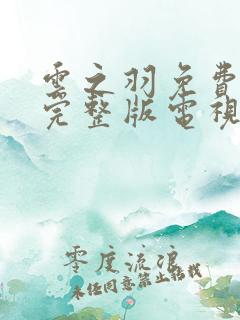 雲之羽免費
完整版電視
零度流浪
未经同意禁止转载